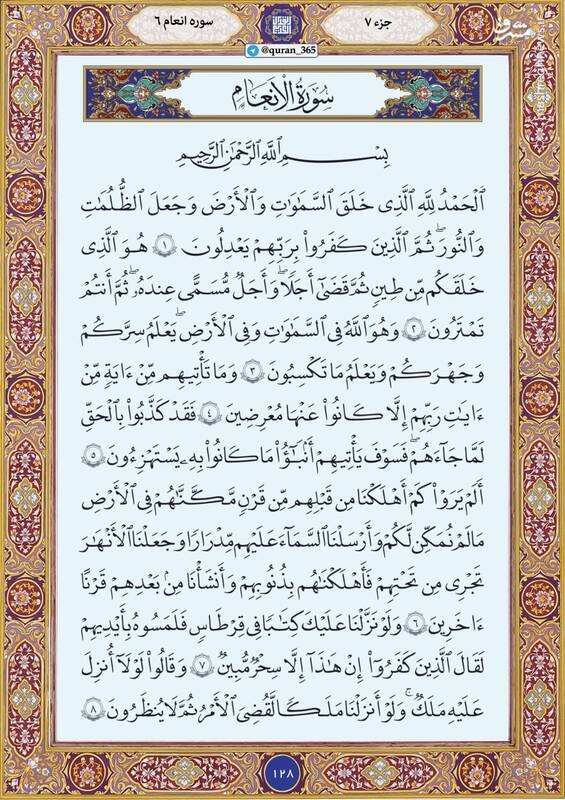 جزء ۷
سوره انعام ۶
@quran_365
سُورَةُ الْأَنْعَامِ
بِسْمِ ٱللَّهِ ٱلرَّحْمَٰنِ ٱلرَّحِيمِ
ٱلْحَمْدُ لِلَّهِ ٱلَّذِى خَلَقَ ٱلسَّمَٰوَٰتِ وَٱلْأَرْضَ وَجَعَلَ ٱلظُّلُمَٰتِ
وَٱلنُّورَ ۖ ثُمَّ ٱلَّذِينَ كَفَرُوا۟ بِرَبِّهِمْ يَعْدِلُونَ ۱ هُوَ ٱلَّذِى
خَلَقَكُم مِّن طِينٍ ثُمَّ قَضَىٰٓ أَجَلًا ۖ وَأَجَلٌ مُّسَمًّى عِندَهُۥ ۖ ثُمَّ أَنتُمْ
تَمْتَرُونَ ۲ وَهُوَ ٱللَّهُ فِى ٱلسَّمَٰوَٰتِ وَفِى ٱلْأَرْضِ ۖ يَعْلَمُ سِرَّكُمْ
وَجَهْرَكُمْ وَيَعْلَمُ مَا تَكْسِبُونَ ۳ وَمَا تَأْتِيهِم مِّنْ ءَايَةٍ مِّنْ
ءَايَٰتِ رَبِّهِمْ إِلَّا كَانُوا۟ عَنْهَا مُعْرِضِينَ ۴ فَقَدْ كَذَّبُوا۟ بِٱلْحَقِّ
لَمَّا جَآءَهُمْ ۖ فَسَوْفَ يَأْتِيهِمْ أَنۢبَٰٓؤُا۟ مَا كَانُوا۟ بِهِۦ يَسْتَهْزِءُونَ ۵
أَلَمْ يَرَوْا۟ كَمْ أَهْلَكْنَا مِن قَبْلِهِم مِّن قَرْنٍ مَّكَّنَّٰهُمْ فِى ٱلْأَرْضِ
مَا لَمْ نُمَكِّن لَّكُمْ وَأَرْسَلْنَا ٱلسَّمَآءَ عَلَيْهِم مِّدْرَارًا وَجَعَلْنَا ٱلْأَنْهَٰرَ
تَجْرِى مِن تَحْتِهِمْ فَأَهْلَكْنَٰهُم بِذُنُوبِهِمْ وَأَنشَأْنَا مِنۢ بَعْدِهِمْ قَرْنًا
ءَاخَرِينَ ۶ وَلَوْ نَزَّلْنَا عَلَيْكَ كِتَٰبًا فِى قِرْطَاسٍ فَلَمَسُوهُ بِأَيْدِيهِمْ
لَقَالَ ٱلَّذِينَ كَفَرُوٓا۟ إِنْ هَٰذَآ إِلَّا سِحْرٌ مُّبِينٌ ۷ وَقَالُوا۟ لَوْلَآ أُنزِلَ
عَلَيْهِ مَلَكٌ ۖ وَلَوْ أَنزَلْنَا مَلَكًا لَّقُضِىَ ٱلْأَمْرُ ثُمَّ لَا يُنظَرُونَ ۸
۱۲۸